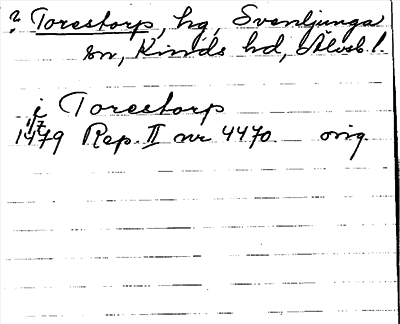 ? Torestorp, hg, Svenljunga
sn, Kinds hd, Älvsb l.
i Torestorp
1/7
1479 Rep. II nr 4470. orig.